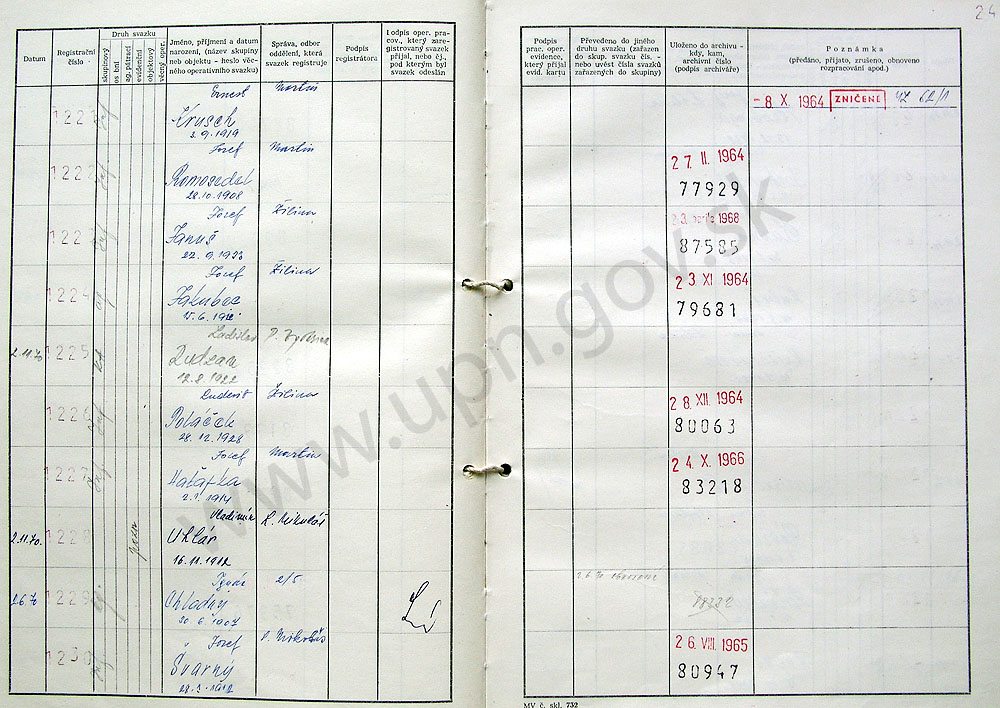 24
Datum
Registrační číslo
Druh svazku
skupinový
os bní
ag. pátrací
evidenční
objektový
Jméno, příjmení a datum narození, (název skupiny neb objektu - heslo věcného operativního svazku)
Správa, odbor oddělení, která svazek registruje
Podpis registrátora
Podpis oper. pracov., který zaregistrovaný svazek přijal, nebo čj., pod kterým byl svazek odeslán
Podpis prac. oper. evidence, který přijal evid. kartu
Převedeno do jiného druhu svazku (zařazen do skup. svazku čís. - nebo uvést čísla svazků zařazených do skupiny)
Uloženo do archivu - kdy, kam, archivní číslo (podpis archiváře)
Poznámka
(předáno, přijato, zrušeno, obnoveno rozpracování apod.)
Ernest Martin
Krusch
2.9.1919
- 8. X. 1964 ZNIČENÉ
1222 Jozef Martin
Romosedat
28.10.1908
27. II. 1964
77929
1223 Jozef Žilina
Januš
22.9.1923
1968
87585
1224 Jozef Žilina
Jakubec
23 XI 1964
79681
2.11.70 1225 Ladislav
12.8.1922
1226 Ludevít Žilina
Poláček
28.12.1928
28. XII. 1964
80063
1227 Jozef Martin
Haťapka
24. X. 1966
83218
2.11.70. 1228 Vladimír L. Mikuláš
Uhlár
16.11.1912
2.6.70 1229 Ignác
Chladný
30.6.1907
1230 Jozef L. Mikuláš
Švarný
26. VIII. 1965
80947
MV č. skl. 732
www.upn.gov.sk